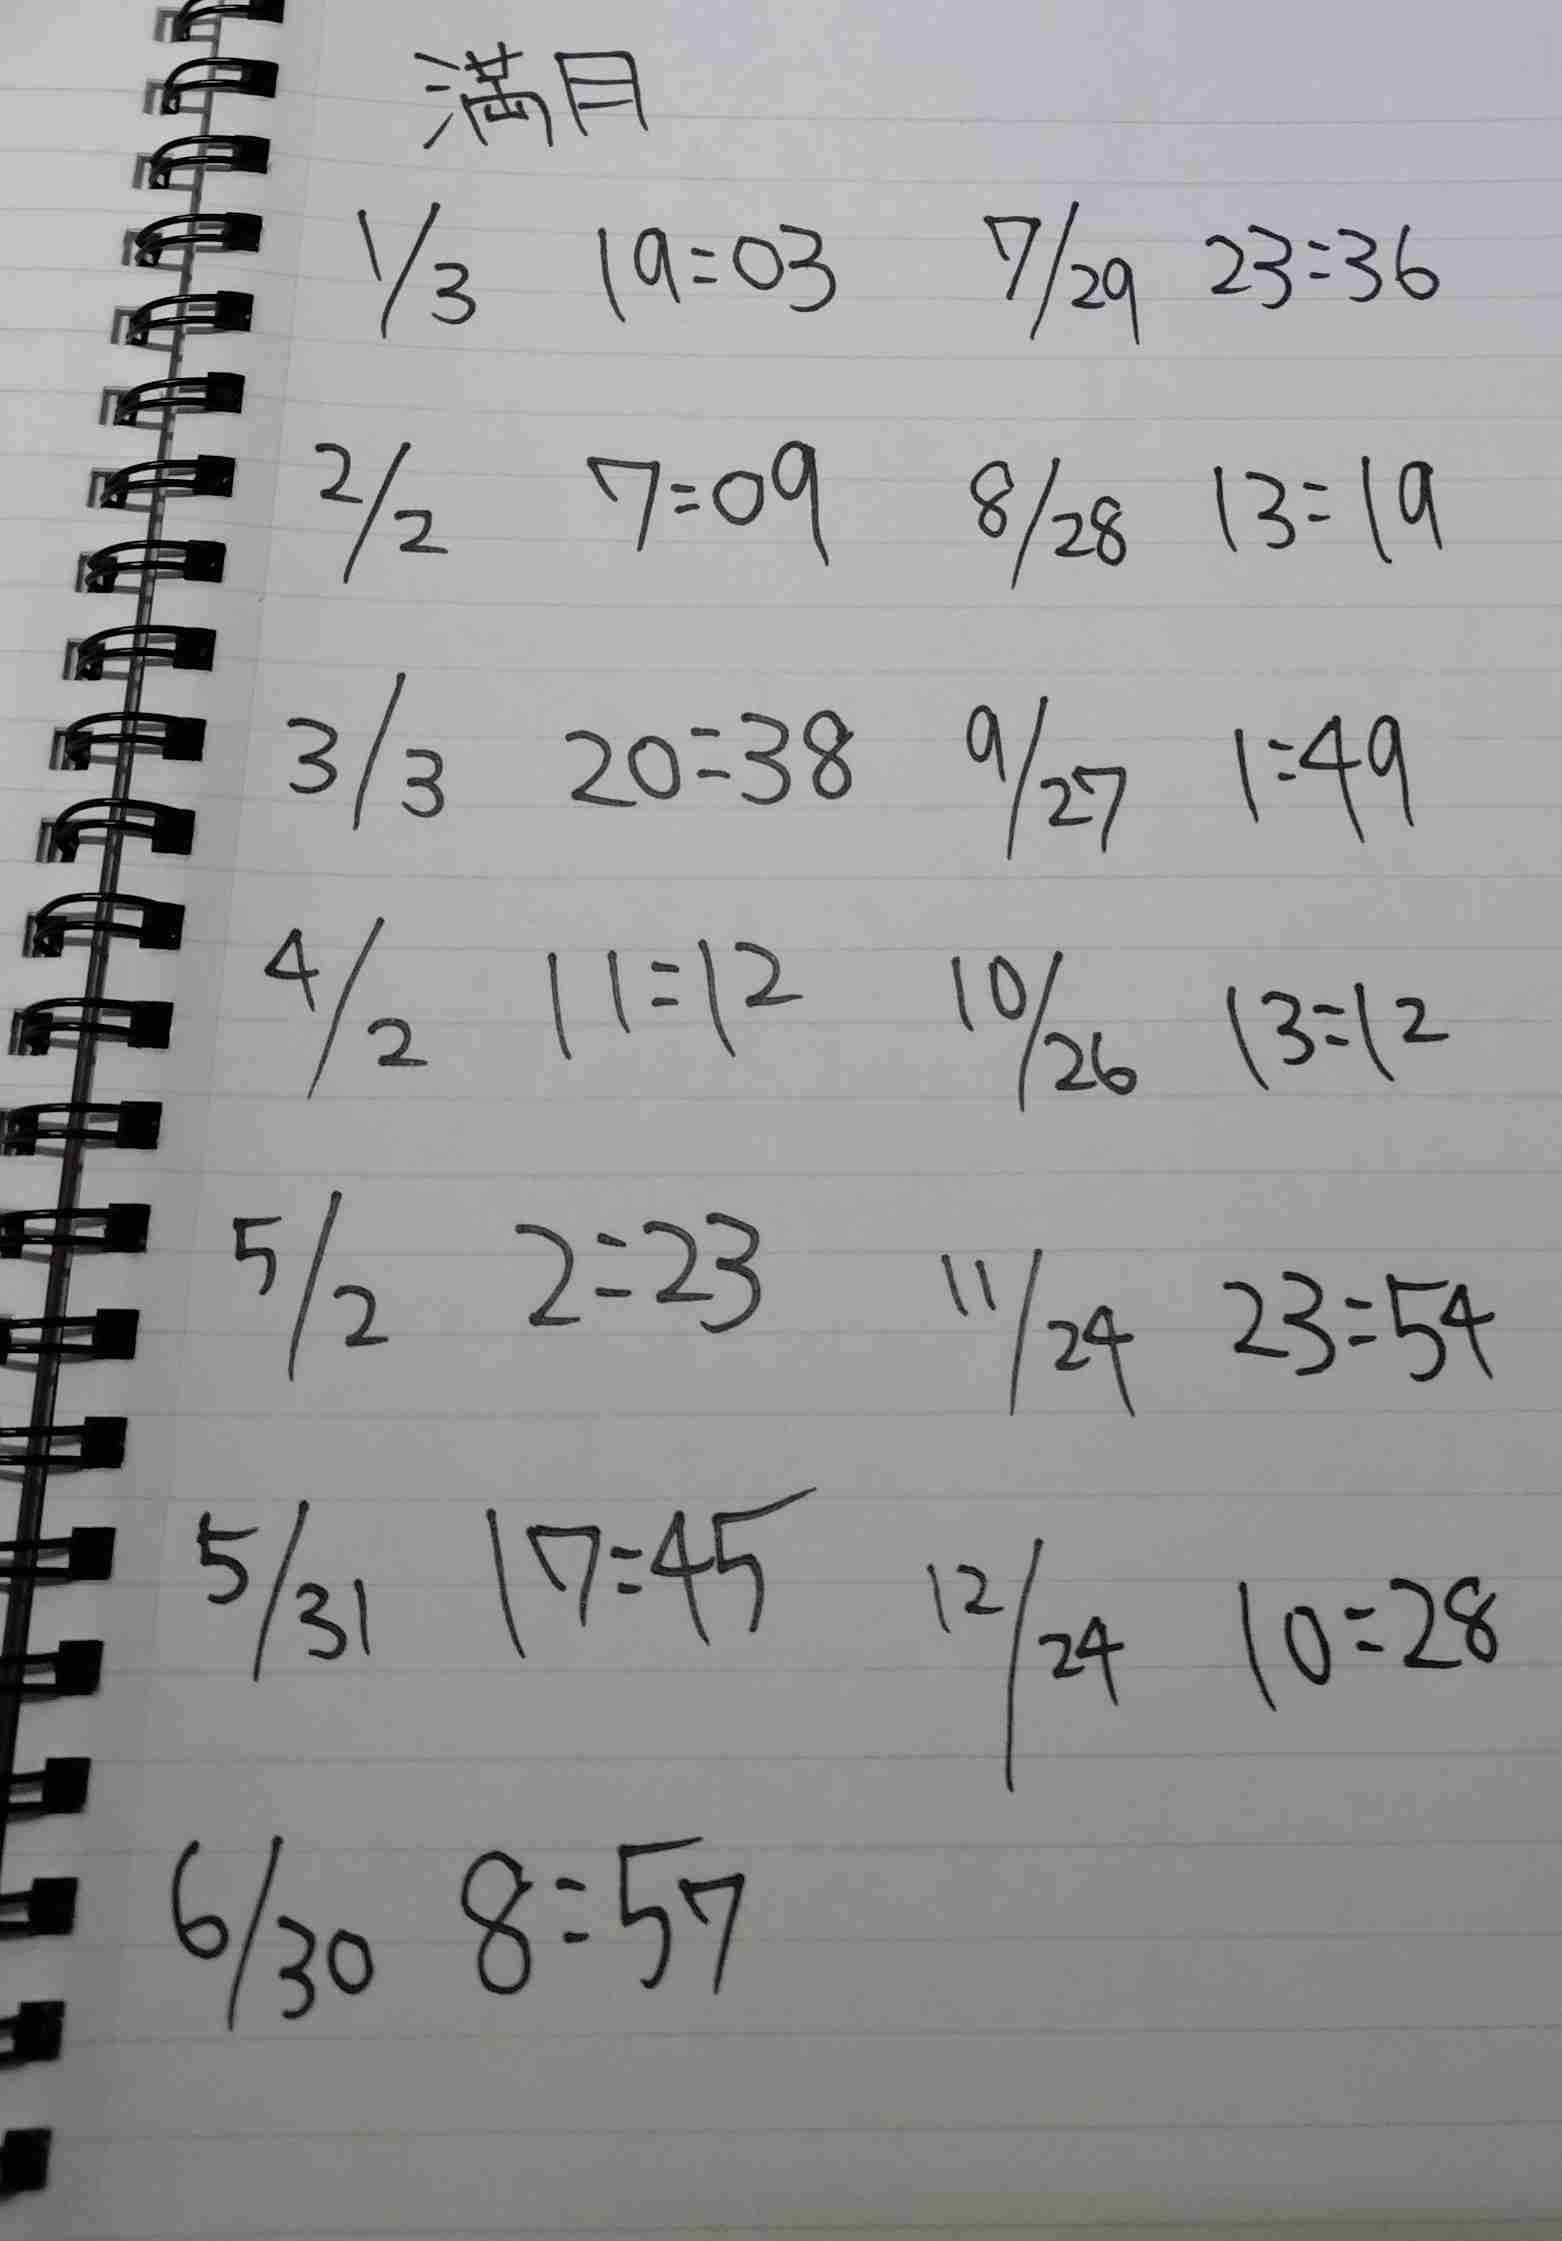 満月
1/3 19:03
2/2 7:09
3/3 20:38
4/2 11:12
5/2 2:23
5/31 17:45
6/30 8:57
7/29 23:36
8/28 13:19
9/27 1:49
10/26 13:12
11/24 23:54
12/24 10:28